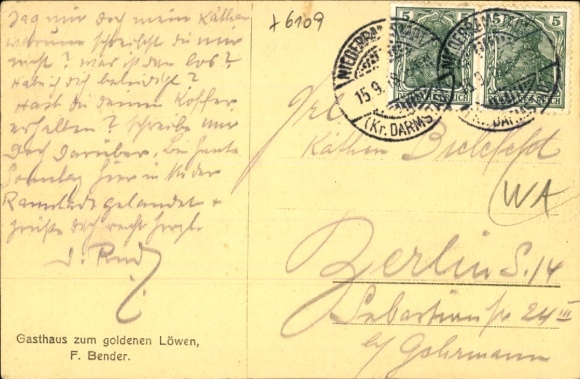 Sag mir doch mein Käthen
warum schreibst du mir
nicht? was ist den los?
Hab ich dich beleidigt?
Hast du deinen Koffer
erhalten? schreibe mir
doch darüber. Bin heute
Sonntag hier in Nieder
Ramstadt gelandet +
grüße dich recht herzl.
Gasthaus zum goldenen Löwen,
F. Bender.
+6109
5 5
5
NIEDER-RAMSTADT
15.9.
(Kr. DARMST
Frl
Käthen Bielefeldt
WA
Berlin S. 14
Sebastianstr 24 III
b/ Gohrmann